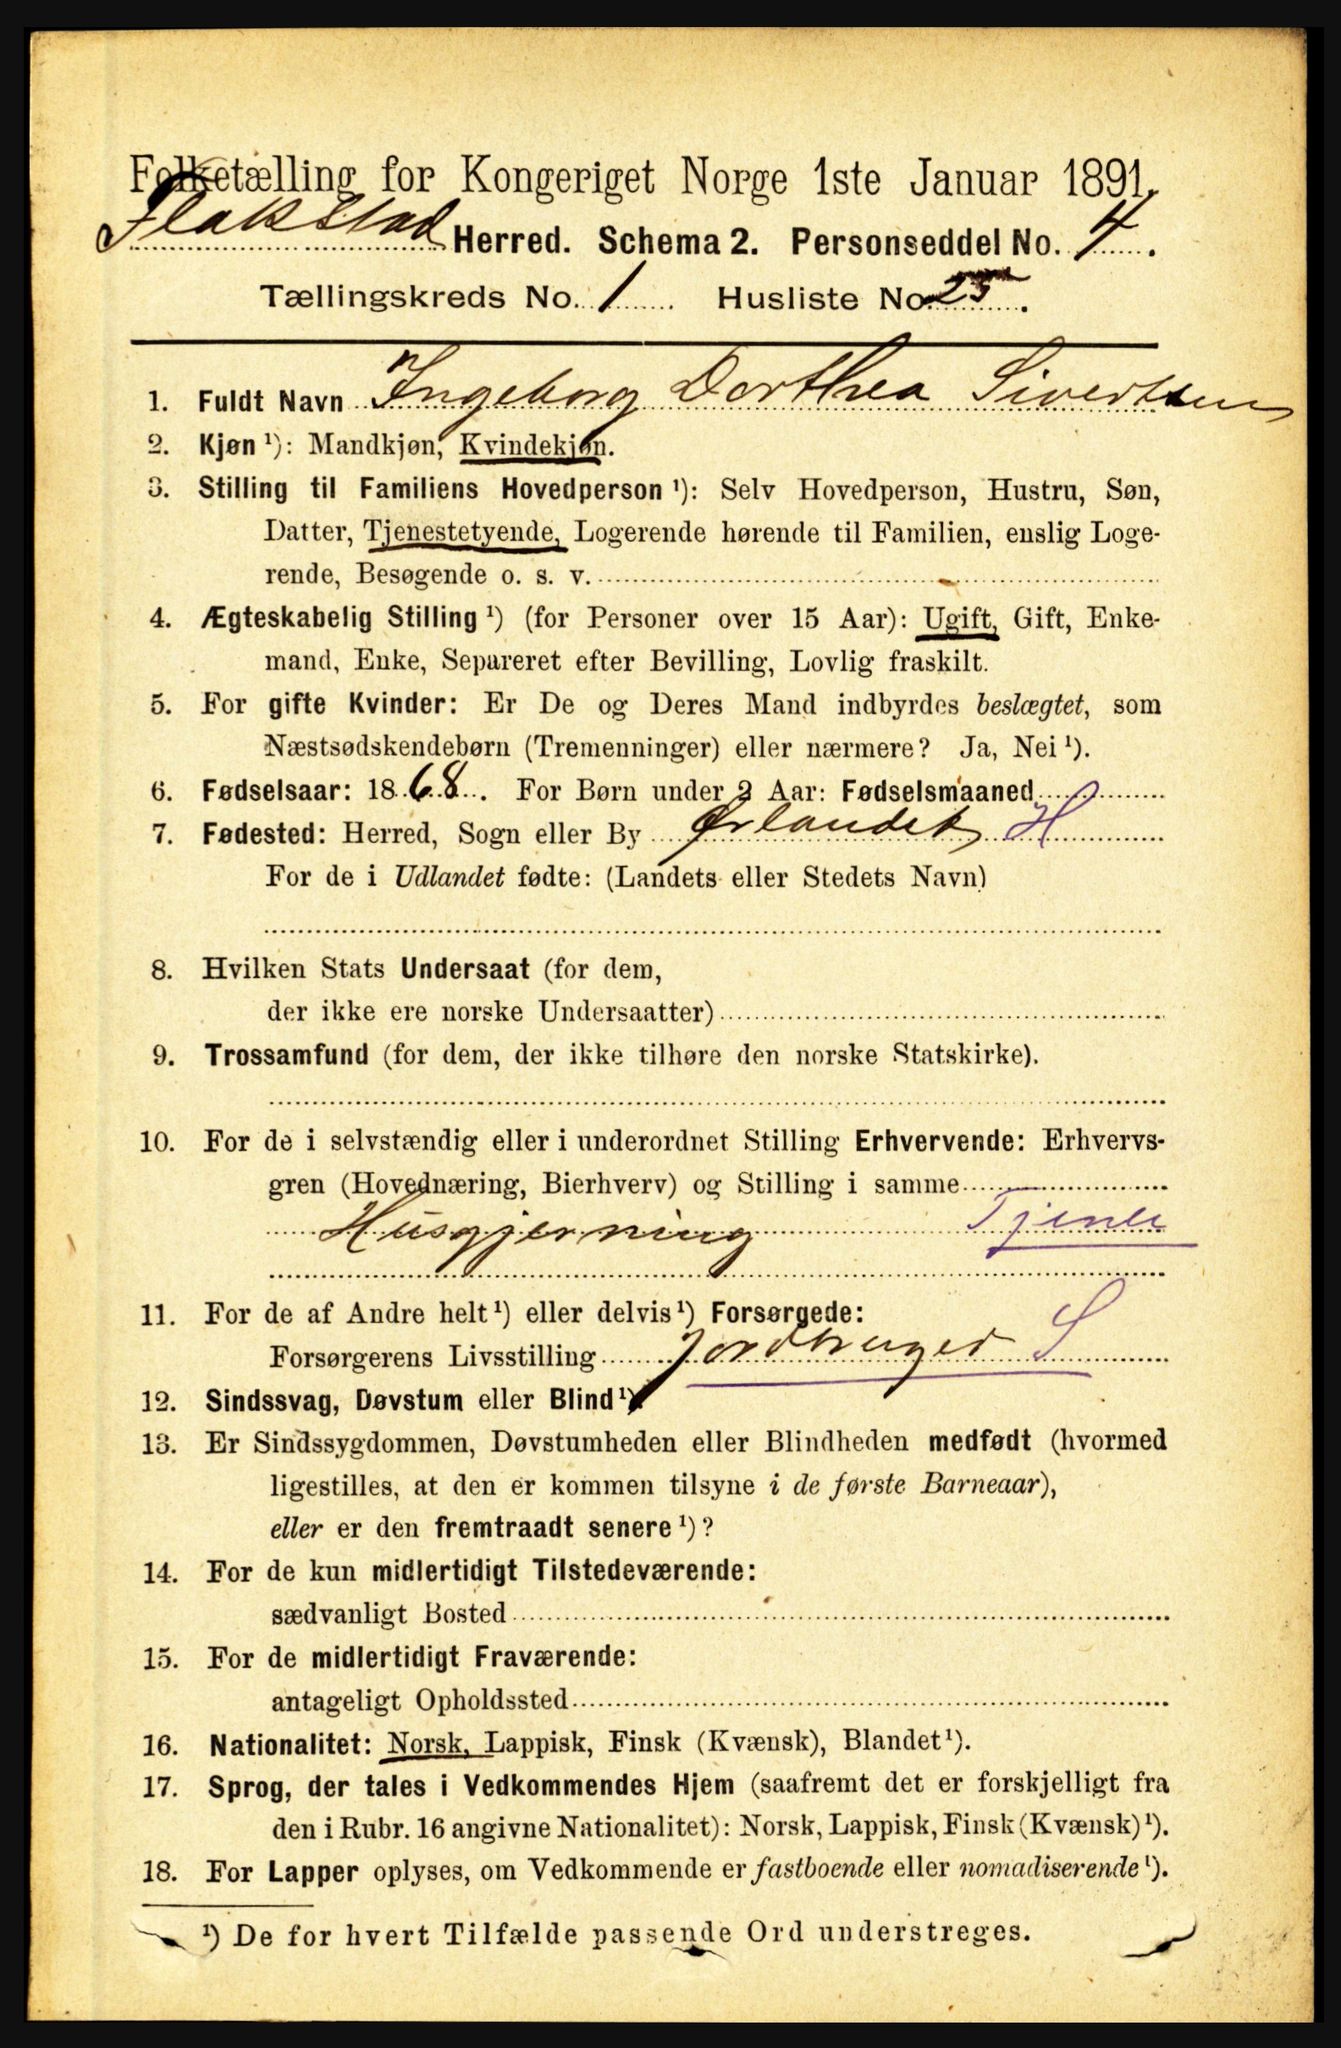 Folketælling for Kongeriget Norge 1ste Januar 1891.
Flakstad Herred. Schema 2. Personseddel No. 4.
Tællingskreds No. 1 Husliste No. 25.
1. Fuldt Navn Ingeborg Dorthea Sivertsen
2. Kjøn ¹): Mandkjøn, Kvindekjøn.
3. Stilling til Familiens Hovedperson ¹): Selv Hovedperson, Hustru, Søn,
Datter, Tjenestetyende, Logerende hørende til Familien, enslig Loge-
rende, Besøgende o. s. v.
4. Ægteskabelig Stilling ¹) (for Personer over 15 Aar): Ugift, Gift, Enke-
mand, Enke, Separeret efter Bevilling, Lovlig fraskilt.
5. For gifte Kvinder: Er De og Deres Mand indbyrdes beslægtet, som
Næstsødskendebørn (Tremenninger) eller nærmere? Ja, Nei ¹).
6. Fødselsaar: 1868. For Børn under 2 Aar: Fødselsmaaned
7. Fødested: Herred, Sogn eller By Ørlandet H
For de i Udlandet fødte: (Landets eller Stedets Navn)
8. Hvilken Stats Undersaat (for dem,
der ikke ere norske Undersaatter)
9. Trossamfund (for dem, der ikke tilhøre den norske Statskirke).
10. For de i selvstændig eller i underordnet Stilling Erhvervende: Erhvervs-
gren (Hovednæring, Bierhverv) og Stilling i samme
Husgjerning Tjener
11. For de af Andre helt ¹) eller delvis ¹) Forsørgede:
Forsørgerens Livsstilling Jordbruger S
12. Sindssvag, Døvstum eller Blind ¹).
13. Er Sindssygdommen, Døvstumheden eller Blindheden medfødt (hvormed
ligestilles, at den er kommen tilsyne i de første Barneaar),
eller er den fremtraadt senere ¹)?
14. For de kun midlertidigt Tilstedeværende:
sædvanligt Bosted
15. For de midlertidigt Fraværende:
antageligt Opholdssted
16. Nationalitet: Norsk, Lappisk, Finsk (Kvænsk), Blandet ¹).
17. Sprog, der tales i Vedkommendes Hjem (saafremt det er forskjelligt fra
den i Rubr. 16 angivne Nationalitet): Norsk, Lappisk, Finsk (Kvænsk) ¹).
18. For Lapper oplyses, om Vedkommende er fastboende eller nomadiserende ¹).
¹) De for hvert Tilfælde passende Ord understreges.